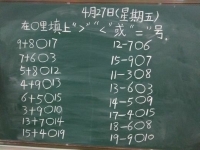 4月27日(星期五)
在○里填上">""<"或"="号。
9+8○17 12-7○6
7+6○3 15-9○7
5+8○12 11-3○8
4+9○13 13-6○3
6+5○15 14-5○9
3+9○10 17-4○15
13+7○14 18-6○8
15+4○19 19-9○10